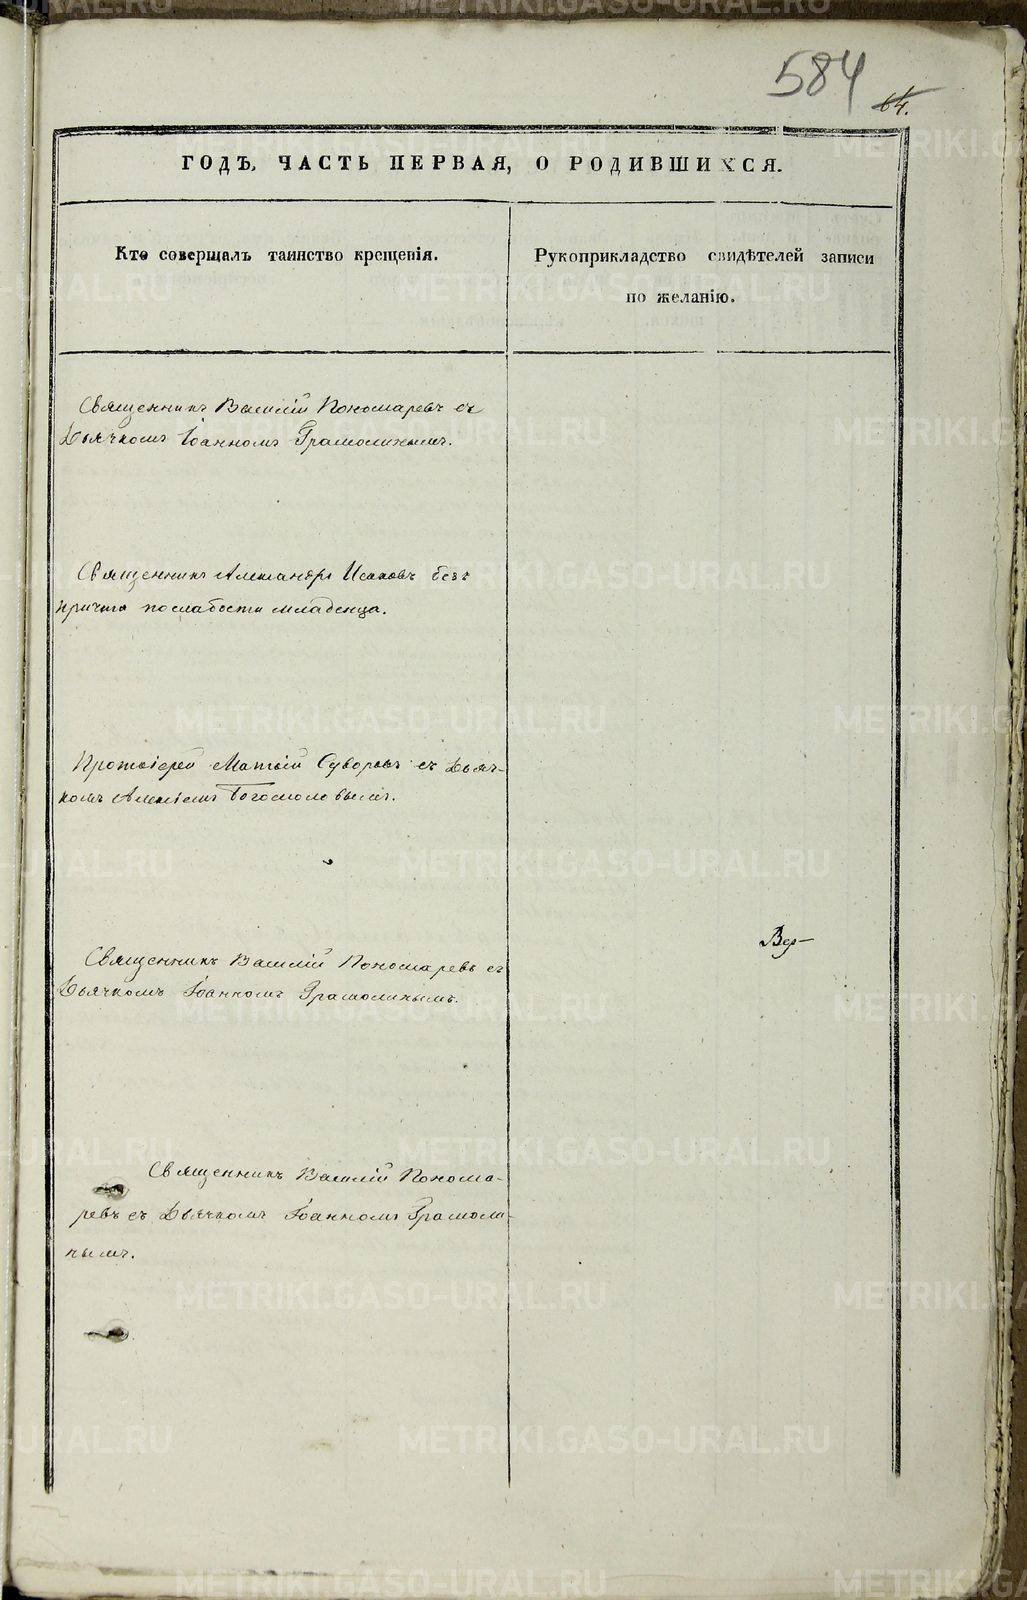 584
64.
ГОДЪ, ЧАСТЬ ПЕРВАЯ, О РОДИВШИХСЯ.
Кто совершалъ таинство крещенія.
Рукоприкладство свидѣтелей записи
по желанію.
Священникъ Василій Пономаревъ съ
Дьячкомъ Іоанномъ Грамолинымъ.
Священникъ Александръ Исаковъ безъ
причта по слабости младенца.
Протоіерей Матѳій Суворовъ съ Дьяч-
комъ Алексіемъ Богомоловымъ.
Священникъ Василій Пономаревъ съ
Дьячкомъ Іоанномъ Грамолинымъ.
Священникъ Василій Понома-
ревъ съ Дьячкомъ Іоанномъ Грамоли-
нымъ.
METRIKI.GASO-URAL.RU